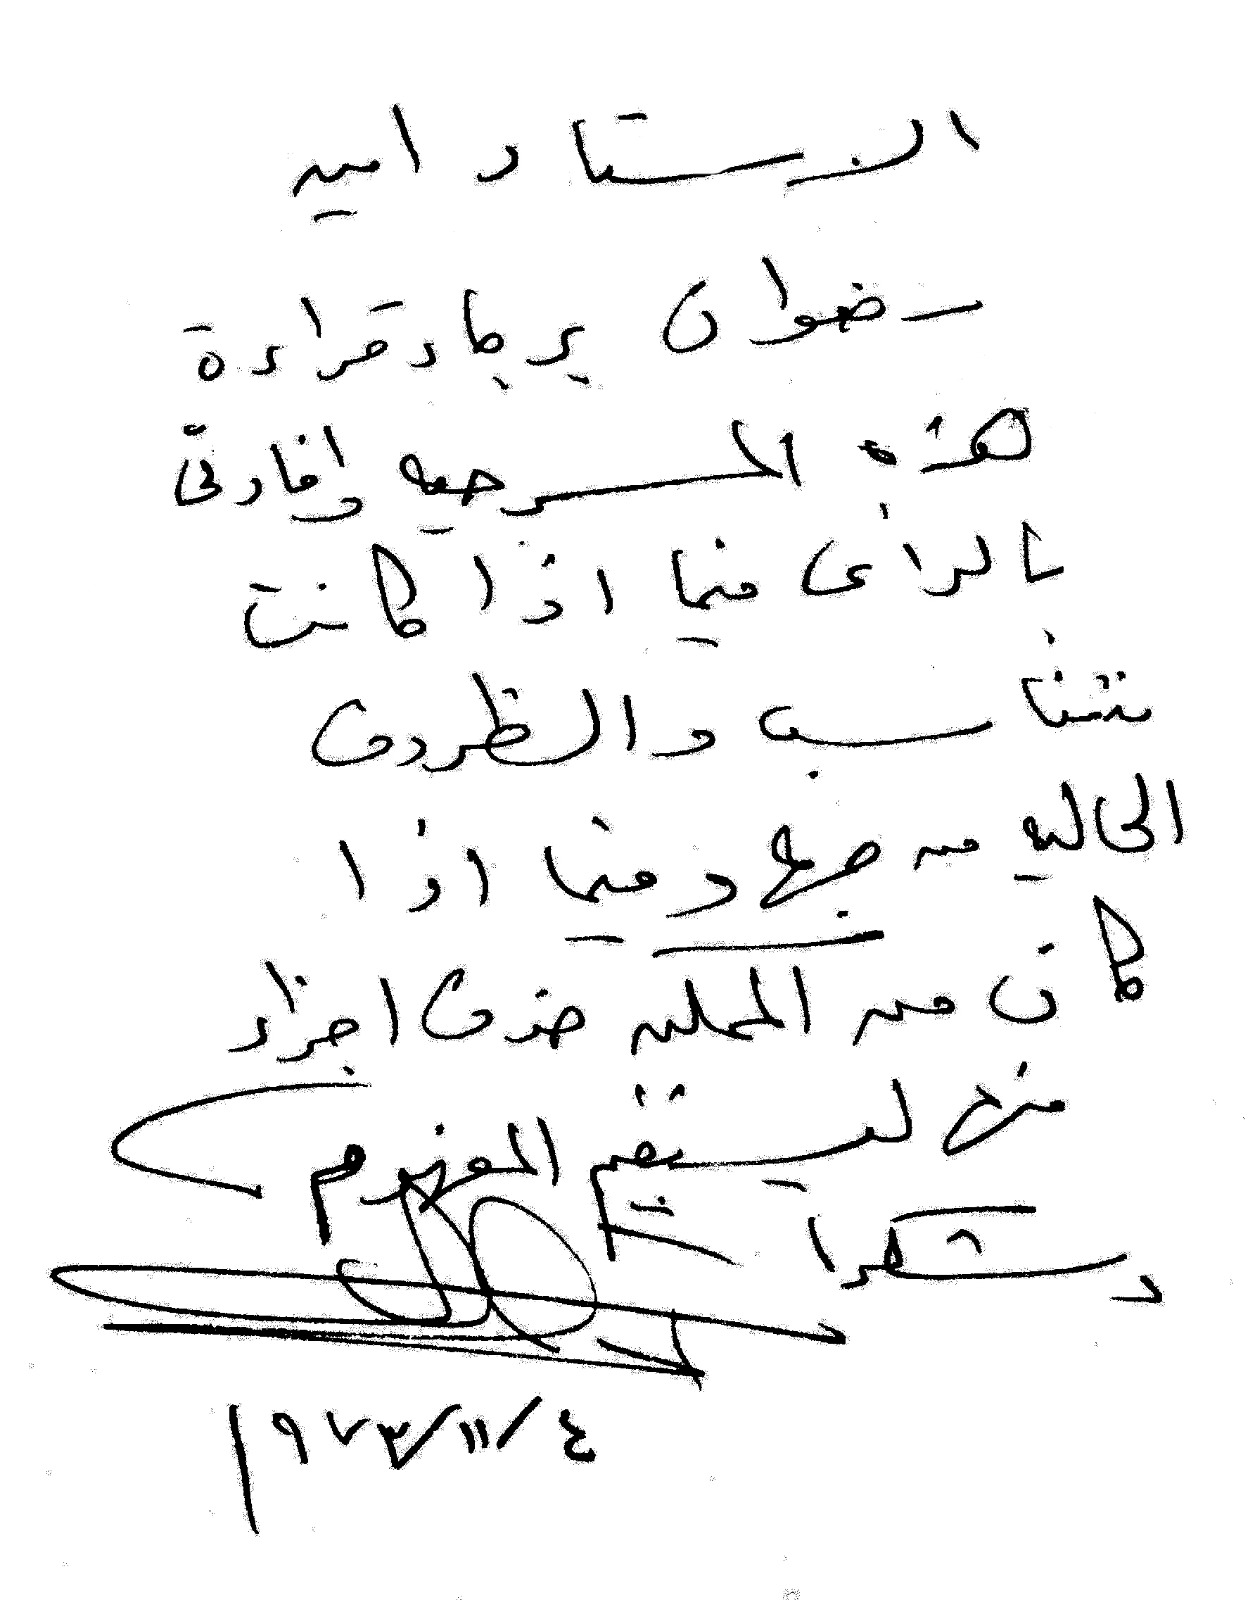 الاستاد امين
رضوان برجاء قراءة
هذه المسرحيه وافادتى
بالرأى فيما اذا كانت
تتناسب والظروف
الحاليه من جهه وفيما اذا
كان من الممكن حذف اجزاء
منها ليستقيم المفهوم
وشكرا
٤/١١/١٩٧٣